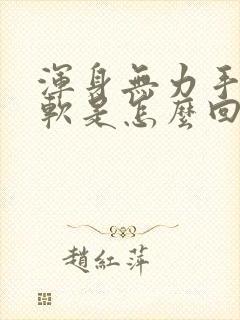 渾身無力手
軟是怎麼回
趙紅萍